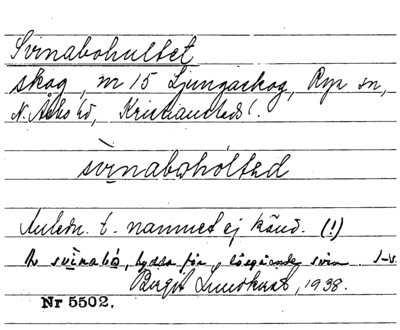 Svinabohultet
skog, m 15 Ljungaskog, Rya sn,
N. Åsbo hd, Kristianstads l.
svinabohòltəd
Anledn. t. namnet ej känd. (!)
svinabo, hydda för lösgående svin.
Birgit Lundkvist, 1938.
Nr 5502.